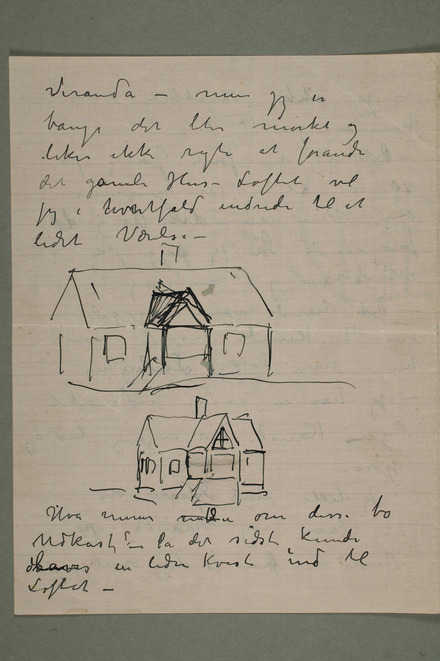 Veranda – men jeg er
bange det blir mørkt og
liker ikke rigti at forandre
det gamle Hus – Loftet vil
jeg i hvertfald indrede til et
lidet Værelse –
Hva mener om disse to
Udkast – Pa det sidste kunde
en liden Kvist ind til
Loftet –